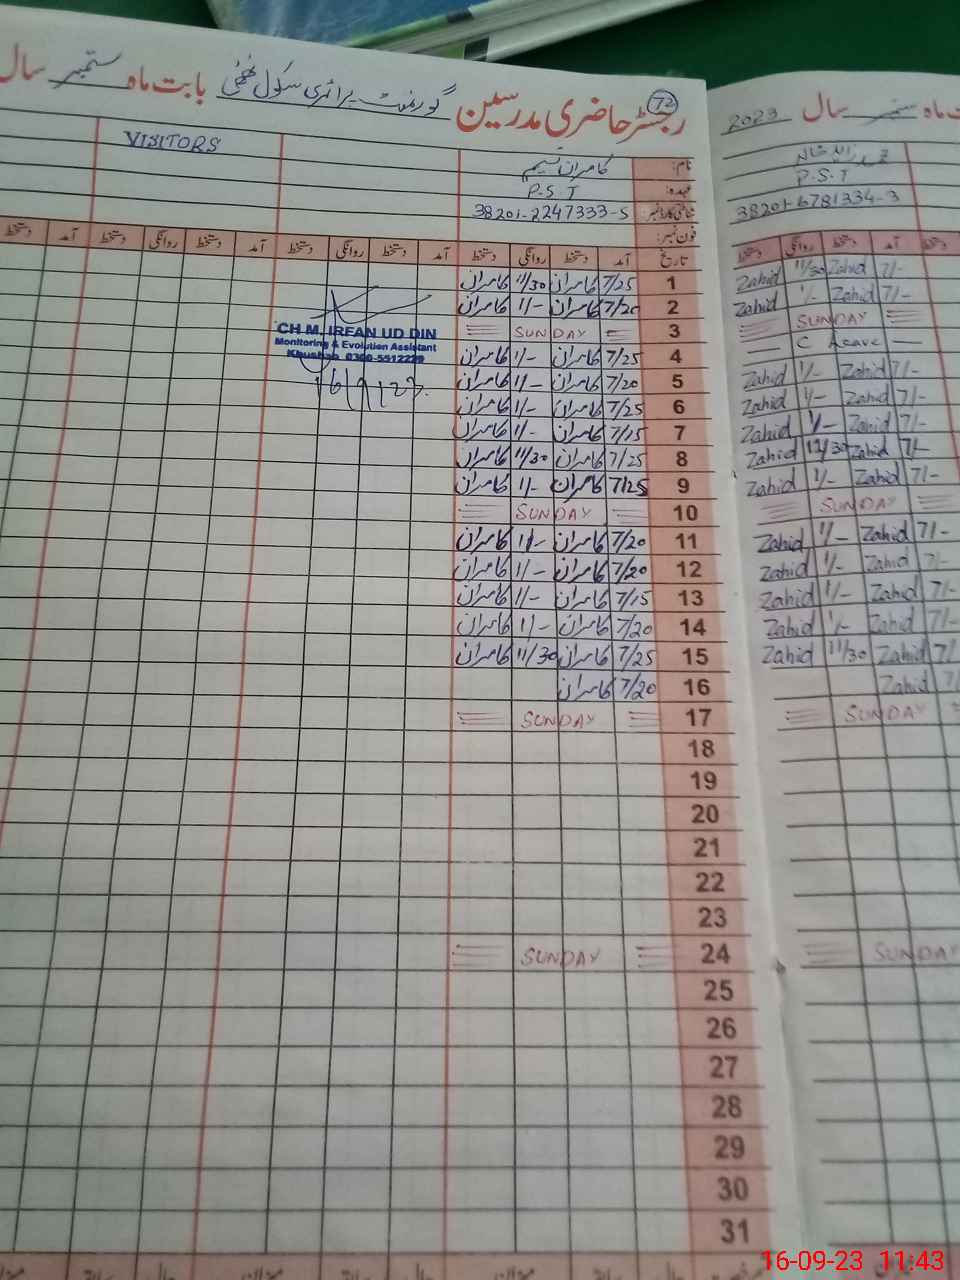 رجسٹر حاضری مدرسین گورنمنٹ پرائمری سکول بابت ماہ ستمبر سال
72
VISITORS
نام: کامران نسیم
عہدہ: P.S.T
شناختی کارڈ نمبر: 38201-2247333-5
فون نمبر:
تاریخ آمد دستخط روانگی دستخط آمد دستخط روانگی دستخط آمد دستخط روانگی دستخط آمد دستخط
1 7/25 کامران 11/30 کامران
2 7/20 کامران 1/- کامران
3 SUNDAY
4 7/25 کامران 1/- کامران
5 7/20 کامران 1/- کامران
6 7/25 کامران 1/- کامران
7 7/15 کامران 1/- کامران
8 7/25 کامران 11/30 کامران
9 7/25 کامران 1/- کامران
10 SUNDAY
11 7/20 کامران 1/- کامران
12 7/20 کامران 1/- کامران
13 7/15 کامران 1/- کامران
14 7/20 کامران 1/- کامران
15 7/25 کامران 11/30 کامران
16 7/20 کامران
17 SUNDAY
18
19
20
21
22
23
24 SUNDAY
25
26
27
28
29
30
31
CH M. IRFAN UD DIN
Monitoring & Evolution Assistant
Khushab 0300-5512229
16/9/23.
ماہ ستمبر سال 2023
P.S.T
38201-6781334-3
دستخط آمد دستخط روانگی دستخط
7/- Zahid 11/30 Zahid
7/- Zahid 1/- Zahid
SUNDAY
C Leave
7/- Zahid 1/- Zahid
7/- Zahid 1/- Zahid
7/- Zahid 1/- Zahid
7/- Zahid 11/30 Zahid
7/- Zahid 1/- Zahid
SUNDAY
7/- Zahid 1/- Zahid
7/- Zahid 1/- Zahid
7/- Zahid 1/- Zahid
7/- Zahid 1/- Zahid
7/- Zahid 11/30 Zahid
7/ Zahid
SUNDAY
SUNDAY
16-09-23 11:43